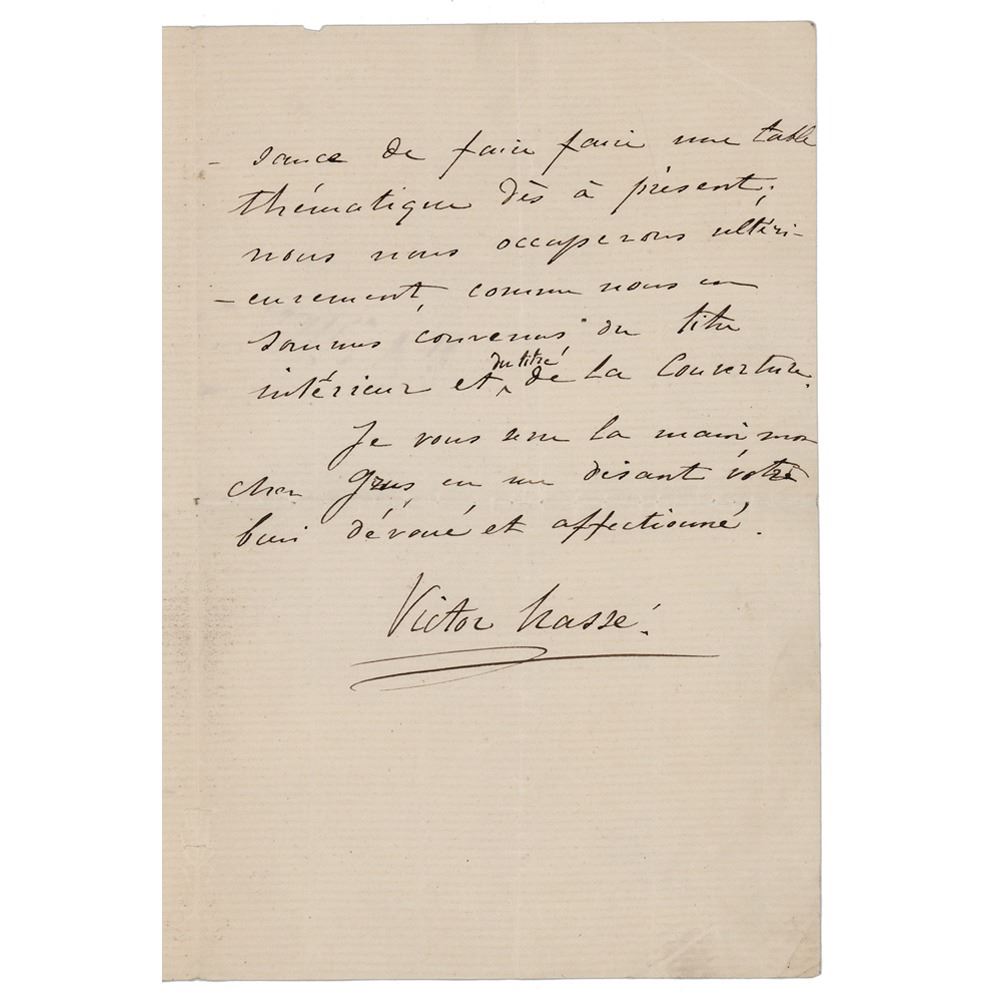 - sance de faire faire une table
thématique dès à présent;
nous nous occuperons ultéri-
- eurement, comme nous en
sommes convenus du titre
intérieur et du titre de la Couverture.
Je vous serre la main mon
cher Grus en me disant votre
bien dévoué et affectionné.
Victor Massé.